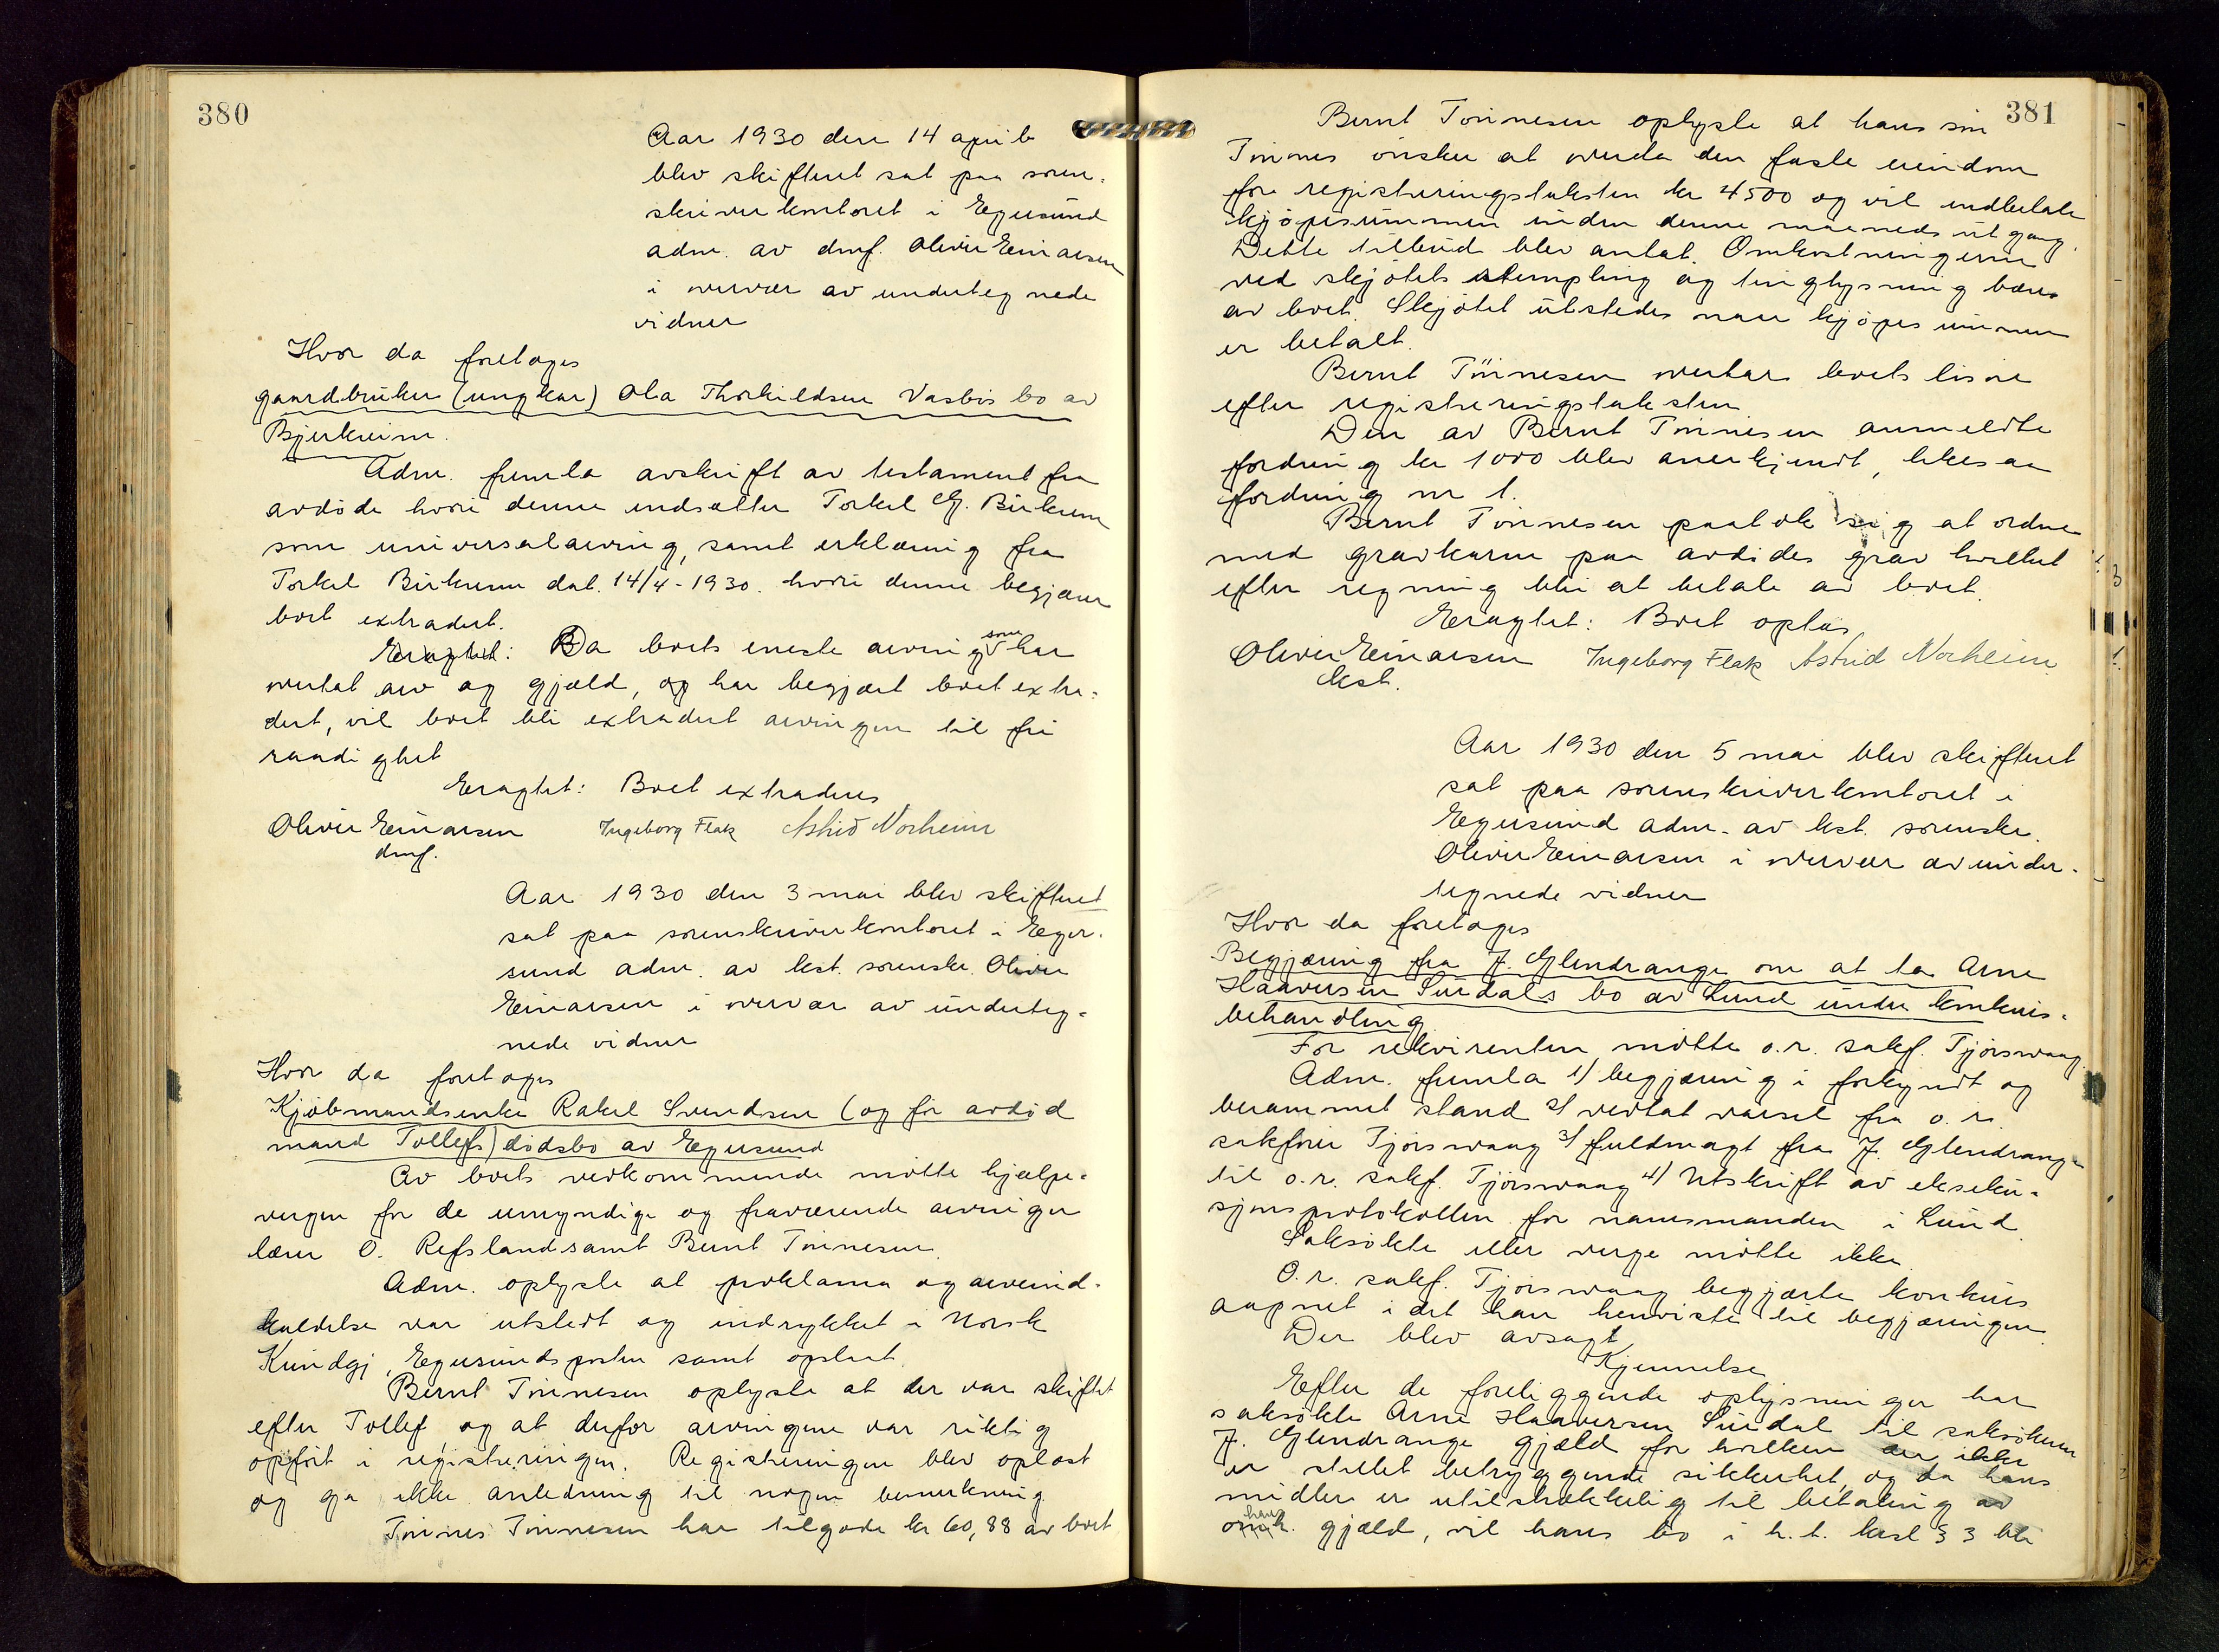 380
Aar 1930 den 14 april
blev skifteret sat paa soren-
skriverkontoret i Egersund
adm. av dmf. Olivir Einarsen
i overvær av undertegnede
vidner
Hvor da foretoges
gaardbruker (ungkar) Ola Thorkildsen Vasbös bo av
Bjerkreim.
Adm. fremla avskrift av testament fra
avdöde hvori denne indsætter Torkel G. Birkrem
som universalarving, samt erklæring fra
Torkel Birkrem dat. 14/4-1930. hvori denne begjærer
boet extradert.
Eragtet: Da boets eneste arving som har
overtat arv og gjæld, og har begjært boet extra-
dert, vil boet bli extradert arvingen til fri
raadighet
Eragtet: Boet extraderes
Olivir Einarsen Ingeborg Flak Astrid Norheim
dmf.
Aar 1930 den 3 mai blev skifteret
sat paa sorenskriverkontoret i Eger-
sund adm. av kst. sorenskr. Olivir
Einarsen i overvær av underteg-
nede vidner
Hvor da foretoges
Kjöbmandsenke Rakel Svendsen (og för avdöd
mand Tollefs) dödsbo av Egersund
Av boets vedkommende mötte hjælpe-
vergen for de umyndige og fraværende arvinger
lærer O. Refsland samt Bernt Tönnesen.
Adm. oplyste at proklama og arveind-
kaldelse var utstedt og indrykket i Norsk
Kundgj, Egersundsposten samt opslaat.
Bernt Tönnesen oplyste at der var skiftet
efter Tollef, og at derfor arvingene var riktig
opfört i registreringen. Registreringen blev oplæst
og ga ikke anledning til nogen bemerkning
Tönnes Tönnesen har tilgode kr 60,88 av boet
381
Bernt Tönnesen oplyste at hans sön
Tönnes önsker at overta den faste eiendom
for registreringstaksten kr 4500 og vil indbetale
kjöpesummen inden denne maaneds utgang.
Dette tilbud blev antat. Omkostningerne
ved skjötets stempling og tinglysning bæres
av boet. Skjötet utstedes naar kjöpesummen
er betalt.
Bernt Tönnesen overtar boets lösöre
efter registreringstaksten
Den av Bernt Tönnesen anmeldte
fordring kr 1000 blev anerkjendt, likesaa
fordring nr 1.
Bernt Tönnesen paatok sig at ordne
med gravkarm paa avdödes grav hvilket
efter regning blir at betale av boet.
Eragtet: Boet optas
Olivir Einarsen Ingeborg Flak Astrid Norheim
kst.
Aar 1930 den 5 mai blev skifteret
sat paa sorenskriverkontoret i
Egersund adm. av kst. sorenskr.
Olivir Einarsen i overvær av under-
tegnede vidner
Hvor da foretoges
Begjæring fra J. Glendrange om at ta Arne
Haaversen Surdals bo av Lund under konkurs-
behandling
For rekvirenten mötte o.r. sakf. Tjörswaag.
Adm. fremla 1) begjæring i forkyndt og
berammet stand 2) vedtat varsel fra o.r.
sakförer Tjörswaag 3) fuldmagt fra J. Glendrange
til o.r. sakf. Tjörswaag 4) Utskrift avekseku-
sjonsprotokollen for namsmanden i Lund
Saksökte eller verge mötte ikke.
O.r. sakf. Tjörswaag begjærte konkurs
aapnet i det han henviste til begjæringen.
Der blev avsagt
Kjennelse
Efter de foreliggende oplysninger har
saksökte Arne Haaversen Surdal til saksökeren
J. Glendrange gjæld for hvilken der ikke
er stillet betryggende sikkerhet, og da hans
midler er utilstrækkelig til betaling av
hans gjæld, vil hans bo i h.t. ksl § 3 bli